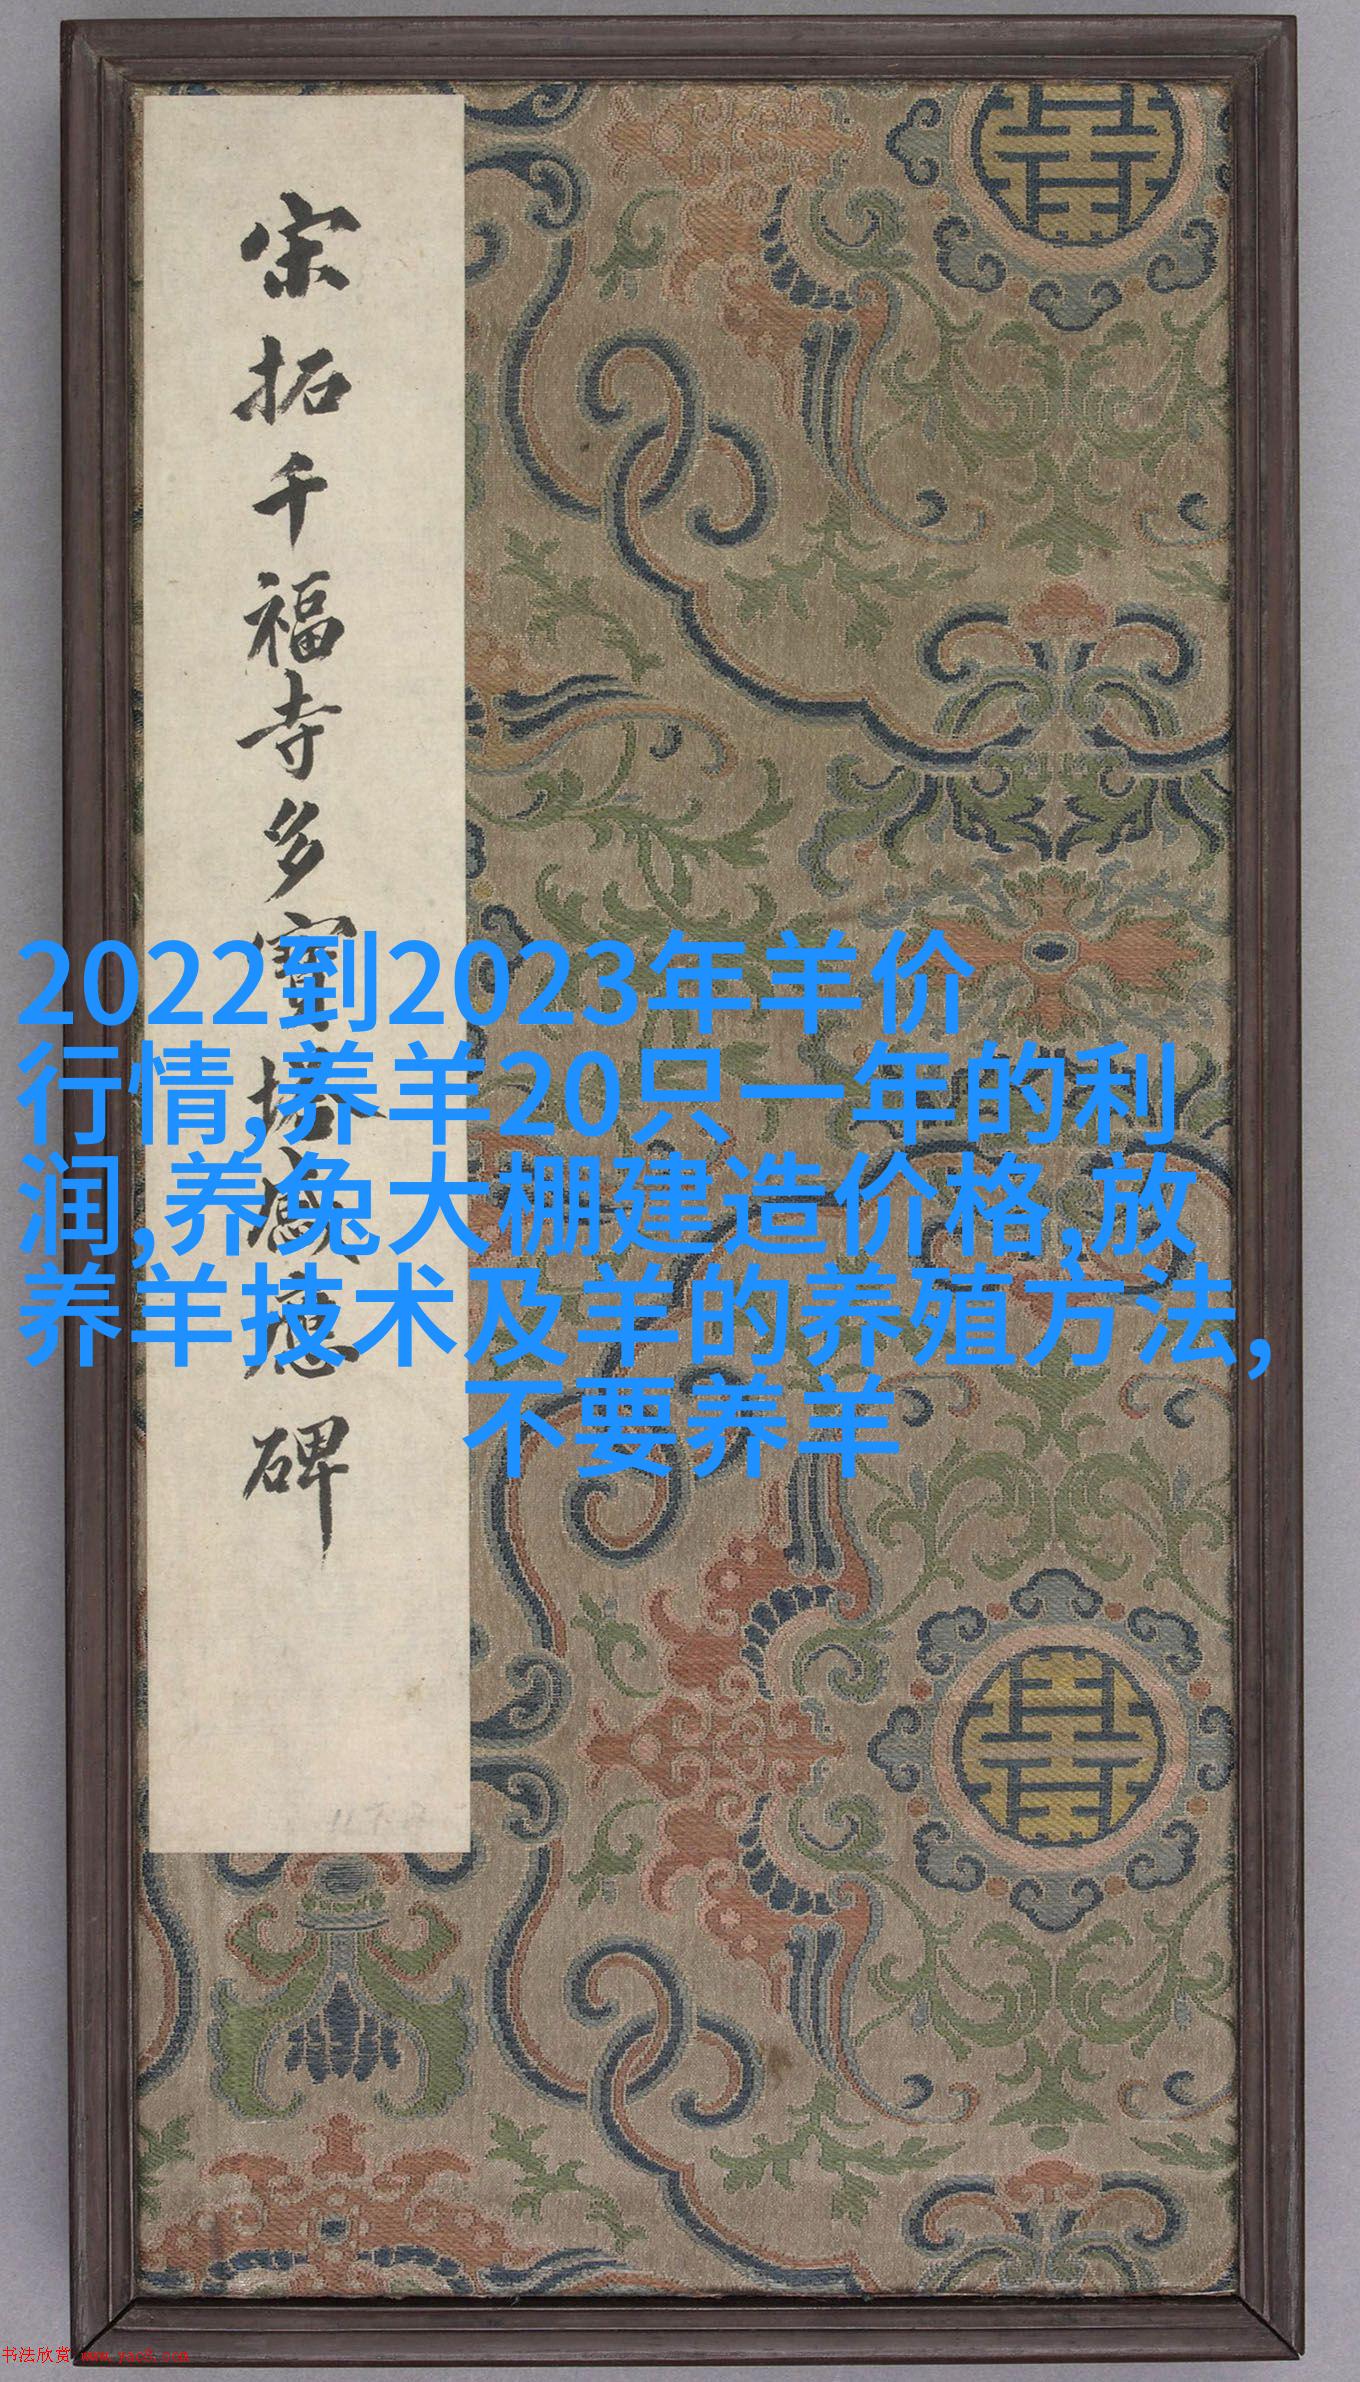 宋拓千福寺多寶塔感應碑
2022到2023年羊价
行情,养羊20只一年的利
润,养兔大棚建造价格,放
养羊技术及羊的养殖方法,
不要养羊
书法欣赏 www.yac8.com